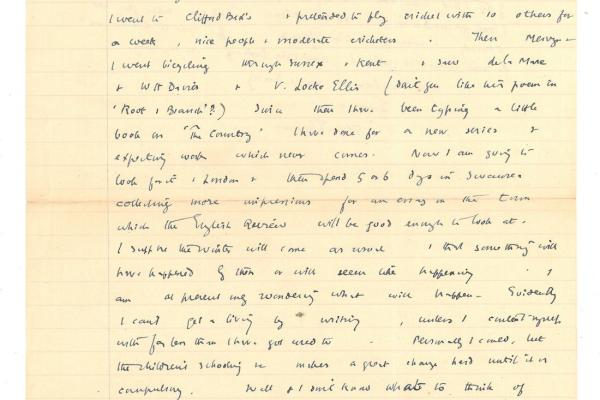 I went to Clifford Bax's & pretended to play cricket with 10 others for
a week, nice people & moderate cricketers. Then Mervyn &
I went bicycling through Sussex & Kent & saw de la Mare
& W H Davies & V. Locke Ellis (Don't you like his poem in
'Root & Branch'?) Since then I have been typing a little
book on 'The Country' I have done for a new series &
expecting work which never comes. Now I am going to
look for it in London & then spend 5 or 6 days in Swansea
collecting more impressions for an essay on the town
which the English Review will be good enough to look at.
I suppose the winter will come as usual & that something will
have happened by then or will seem like happening. I
am at present only wondering what will happen. Evidently
I can't get a living by writing, unless I content myself
with far less than I have got used to. Personally I could, but
the children's schooling &c makes a great change hard until it is
compulsory. Well & I don't know what to think of